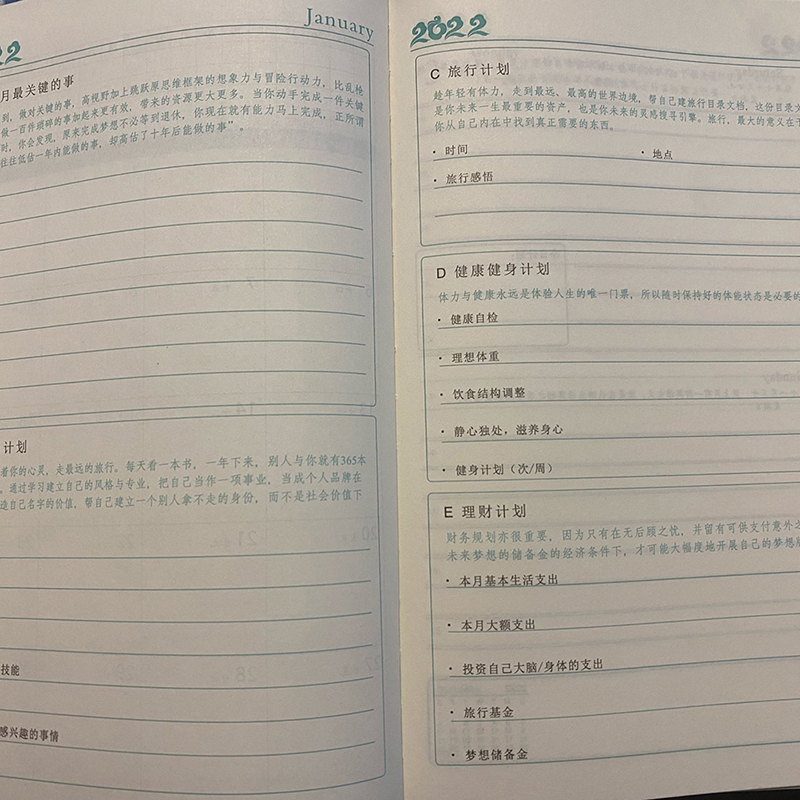 22
January
月最关键的事
到, 做对关键的事, 高视野加上跳跃原思维框架的想象力与冒险行动力, 比乱枪
做一百件琐碎的事加起来更有效, 带来的资源更大更多。当你动手完成一件关键
时, 你会发现, 原来完成梦想不必等到退休, 你现在就有能力马上完成, 正所谓
往往低估一年内能做的事, 却高估了十年后能做的事”。
计划
着你的心灵, 走最远的旅行。每天看一本书, 一年下来, 别人与你就有365本
通过学习建立自己的风格与专业, 把自己当作一项事业, 当成个人品牌在
造自己名字的价值, 帮自己建立一个别人拿不走的身份, 而不是社会价值下
技能
感兴趣的事情
2022
C 旅行计划
趁年轻有体力, 走到最远、最高的世界边境, 帮自己建旅行目录文档, 这份目录文
是你未来一生最重要的资产, 也是你未来的灵感搜寻引擎。旅行, 最大的意义在于
你从自己内在中找到真正需要的东西。
· 时间 · 地点
· 旅行感悟
D 健康健身计划
体力与健康永远是体验人生的唯一门票, 所以随时保持好的体能状态是必要的
· 健康自检
· 理想体重
· 饮食结构调整
· 静心独处, 滋养身心
· 健身计划（次/周）
E 理财计划
财务规划亦很重要, 因为只有在无后顾之忧, 并留有可供支付意外之
未来梦想的储备金的经济条件下, 才可能大幅度地开展自己的梦想
· 本月基本生活支出
· 本月大额支出
· 投资自己大脑/身体的支出
· 旅行基金
· 梦想储备金